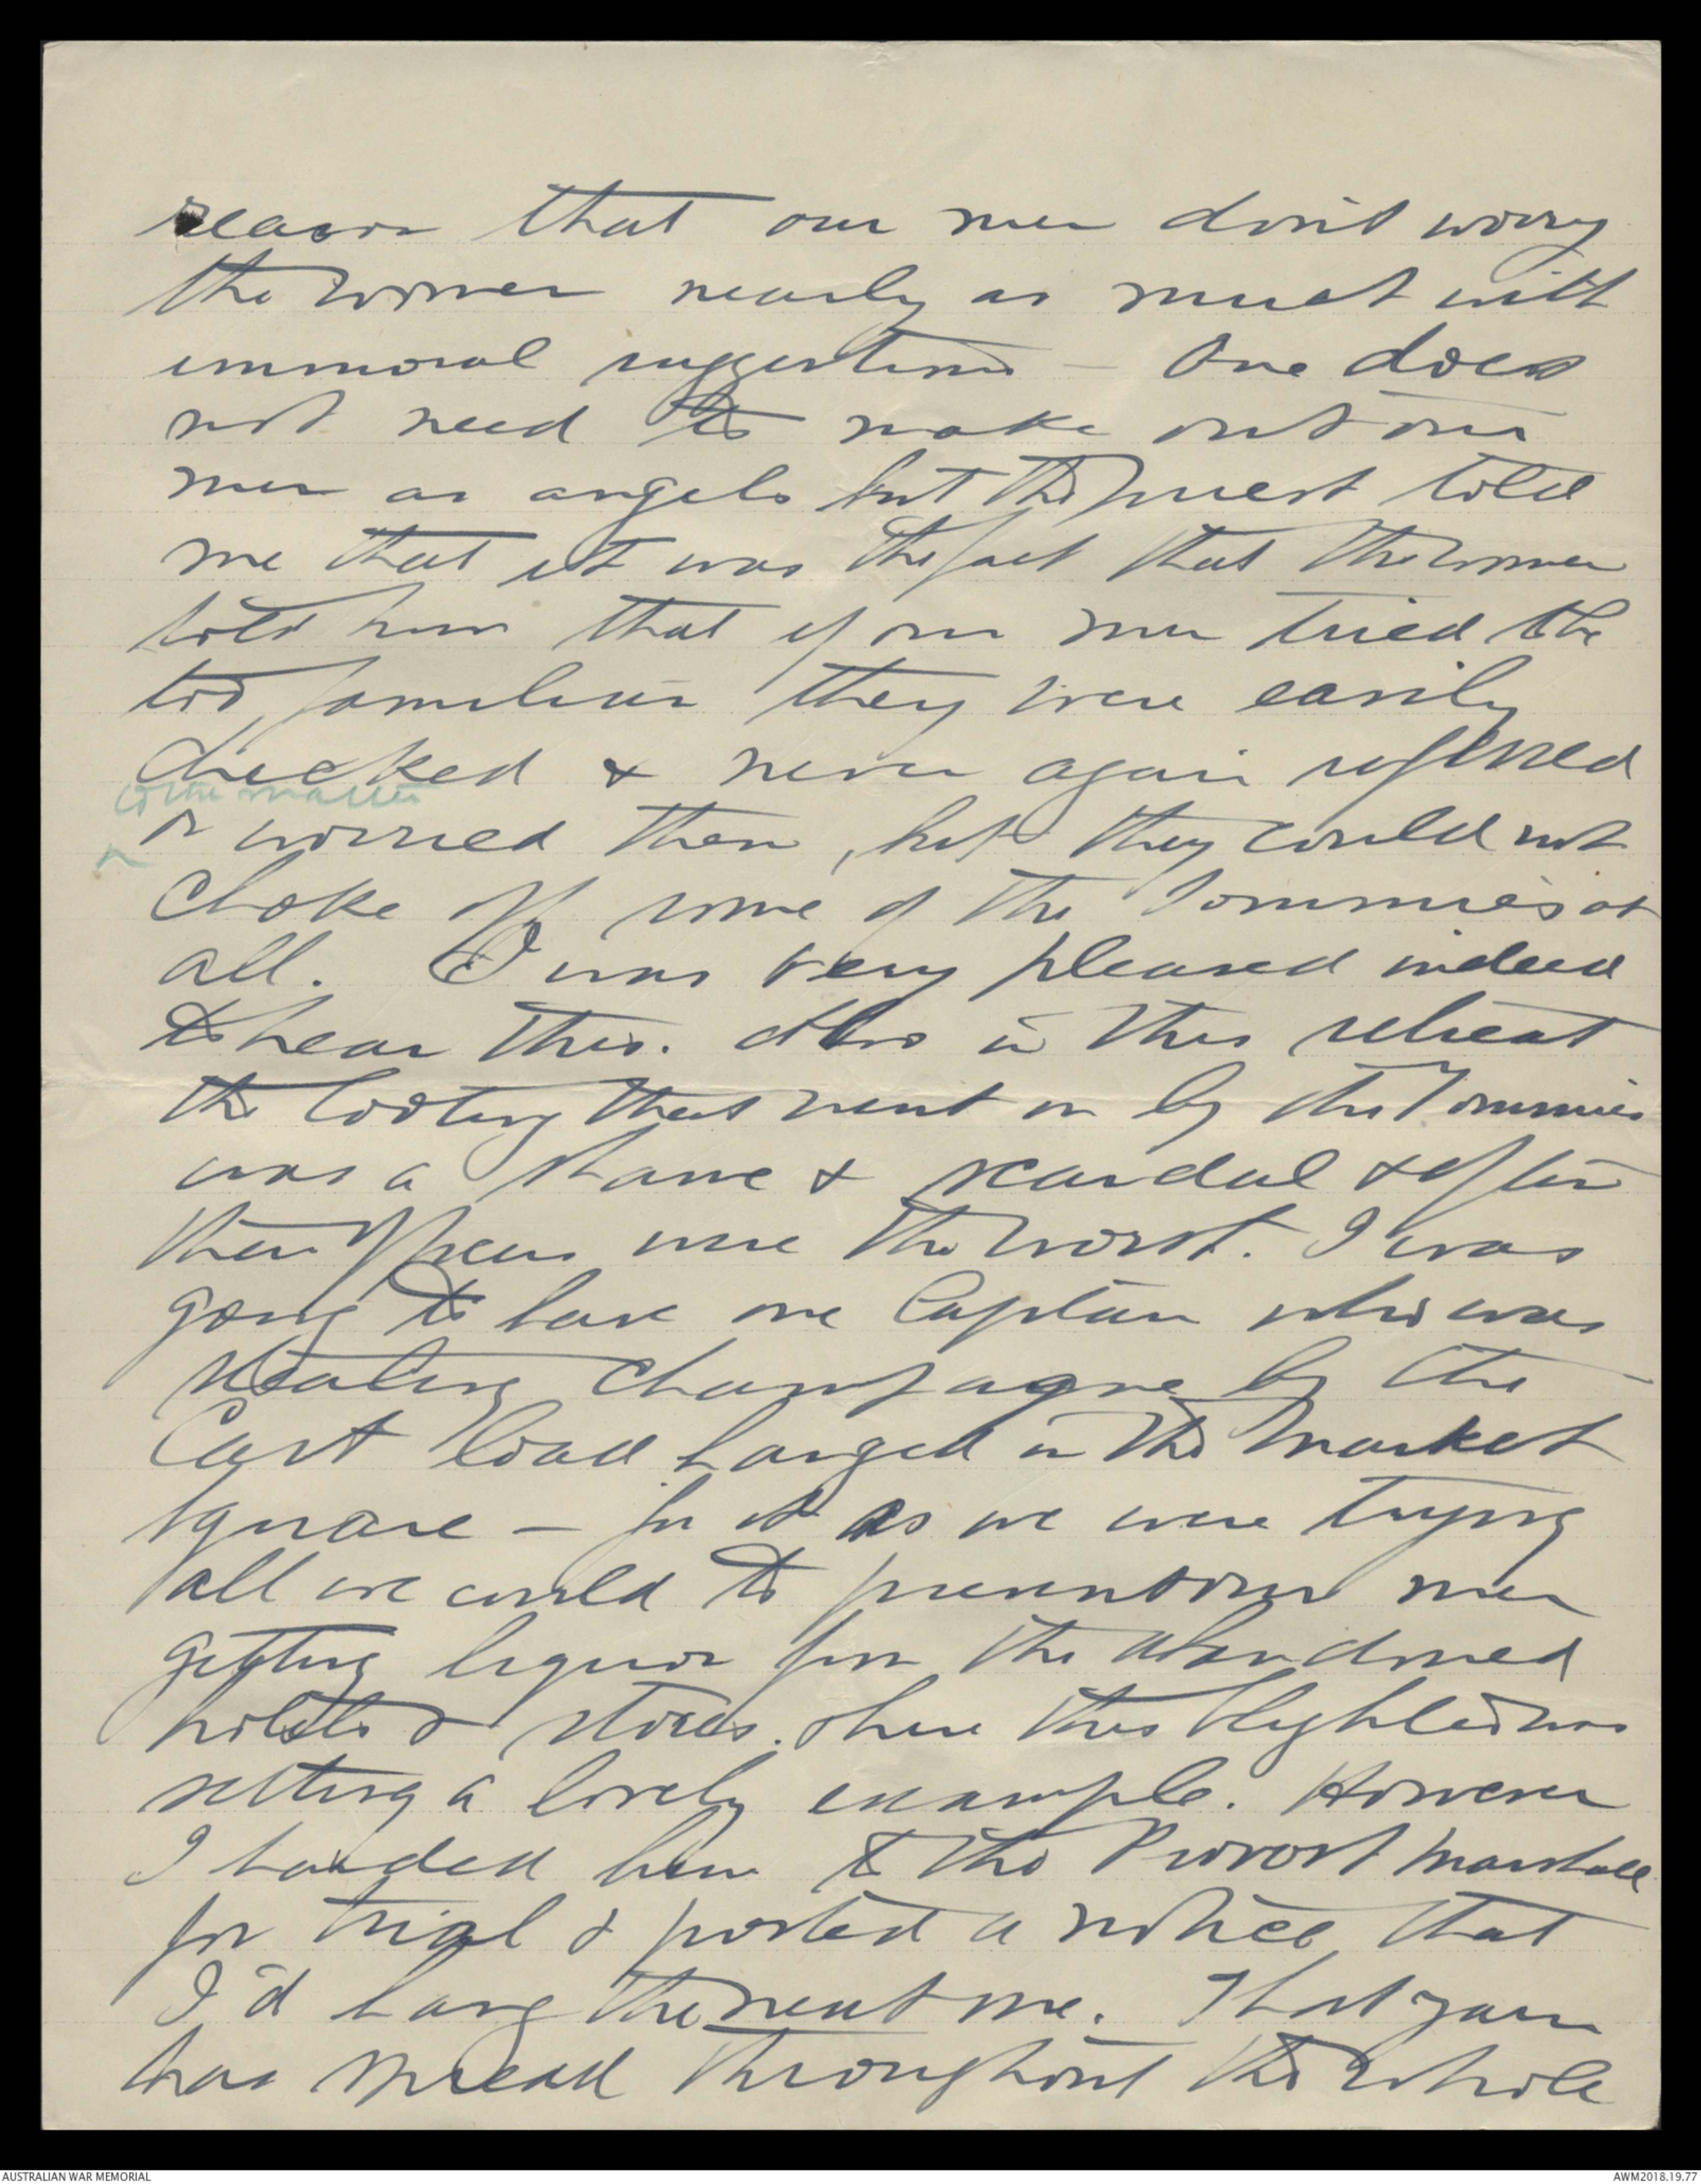 reason that our men don't worry
the women nearly as much with
immoral suggestions - One does
not need to make out our
men as angels but the priest told
me that it was the fact that the women
told him that if our men tried the
too familiar they were easily
checked & never again referred
to the matter
or worried them, but they could not
choke off some of the Tommies at
all. I was very pleased indeed
to hear this. Also in this retreat
the looting that went on by the Tommies
was a shame & scandal & often
their Officers were the worst. I was
going to have one Captain who was
stealing champagne by the
Cart load hanged in the Market
Square - for it as we were trying
all we could to prevent our men
getting liquor from the abandoned
hotels & stores. Here this blighter was
setting a lovely example. However
I handed him to the Provost Marshall
for trial & posted a notice that
I'd hang the next one. That yarn
has spread throughout the whole
AUSTRALIAN WAR MEMORIAL
AWM2018.19.77